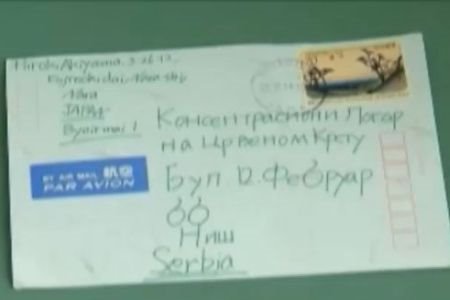 Hiroki Akiyama. 3-26-12
Fujinokidai Nara-shi
Nara
JAPAN
By air mail
BY AIR MAIL 航空
PAR AVION
Концентрасиони Логор
на Црвеном Крсту
Бул 12. Фебруар
66
Ниш
Serbia